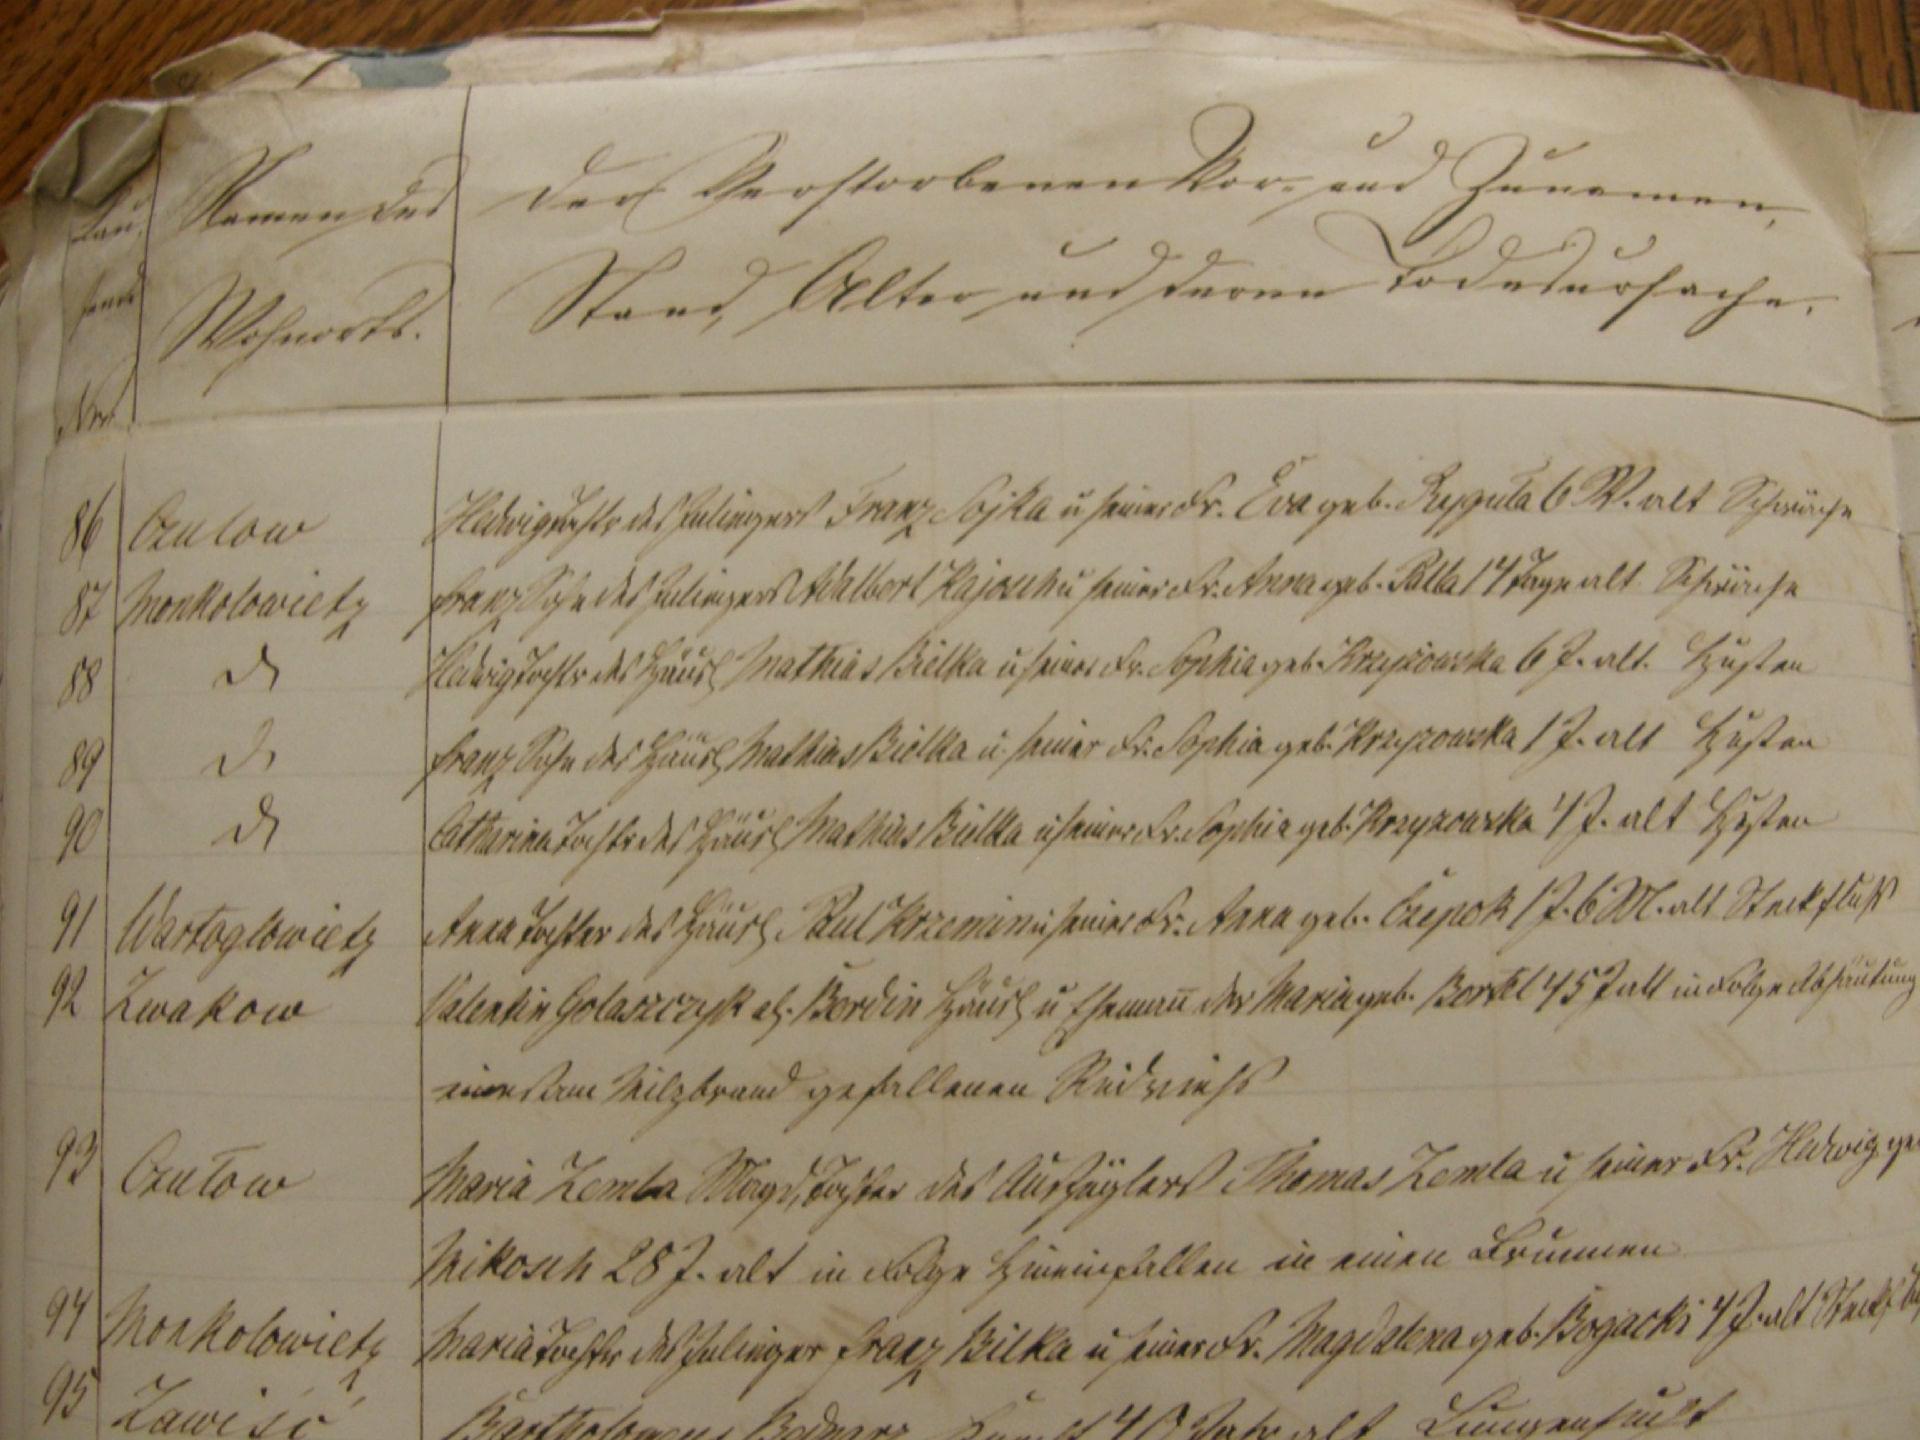 Lau-
fende
Nro.
Namen des
Wohnorts.
Der Verstorbenen Vor- und Zunamen,
Stand, Alter und deren Todesursache.
86 Czulow Hedwig Tochtr des Inliegers Franz Sojka u seiner Fr. Eva geb. Ryguła 6 W. alt Schwäche
87 Monkolowietz Franz Sohn des Inliegers Adalbert Kajoch u seiner Fr. Anna geb. 14 Tage alt Schwäche
88 do Hedwig Tochtr des Häusl Mathias Bielka u seiner Fr. Sophia geb. Krzyżowska 6 J. alt. Husten
89 do Franz Sohn des Häusl Mathias Bielka u. seiner Fr. Sophia geb. Krzyzowska 1 J. alt Husten
90 do Catharina Tochtr des Häusl Mathias Bielka u seiner Fr. Sophia geb. Krzyzowska 4 J. alt Husten
91 Wartoglowietz Anna Tochter des Häusl Paul Krzemin u seiner Fr. Anna geb. Czepok 1 J. 6 M. alt Steckfluß
92 Zwakow Valentin Golaszczyk al. Bordin Häusl u Ehemañ der Maria geb. 45 J alt in Folge Abhäutung
eines am Milzbrand gefallenen Rindviehs
93 Czułow Maria Zemla Magd, Tochter des Auszüglers Thomas Zemla u seiner Fr. Hedwig ge
Mikosch 28 J. alt in Folge Hineinfallen in einen Brunnen
94 Monkolowietz Maria Tochtr des Inlieger Franz Bilka u seiner Fr. Magdalena geb. Bogacki 4 J. alt
95 Zawiść Bartholomeus Bednarz 40 Jahr alt Lungensucht